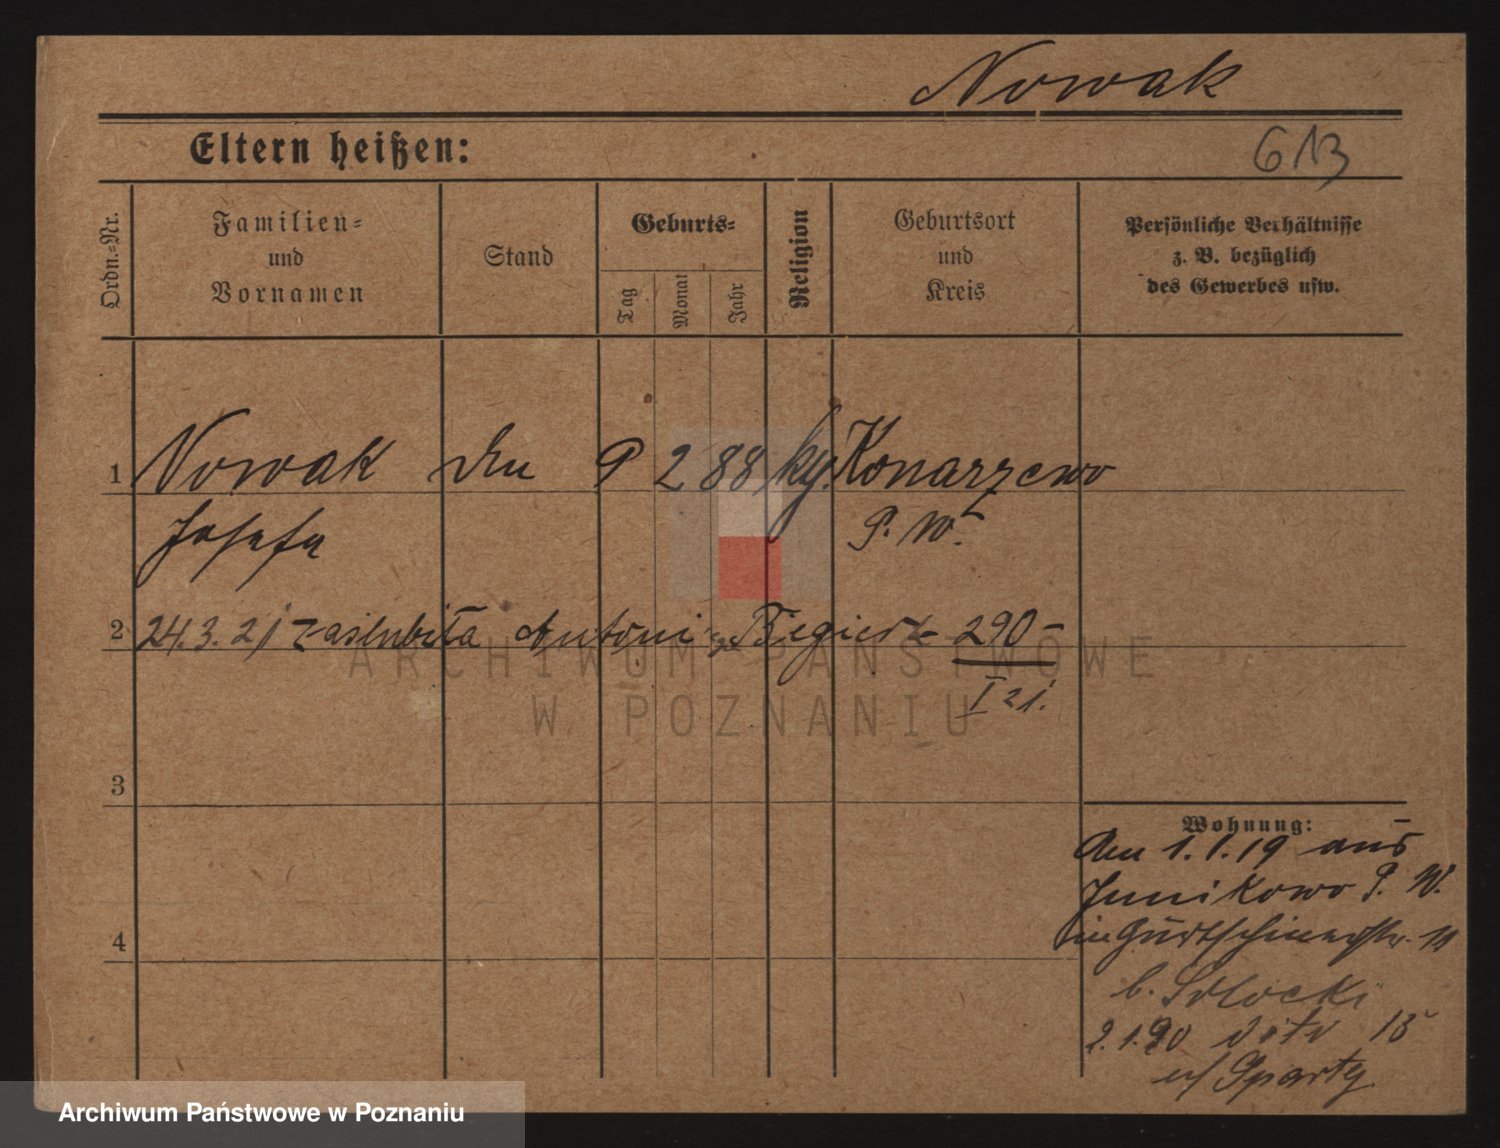 Nowak
Eltern heißen:
613
Ordn.-Nr.
Familien-
und
Vornamen
Stand
Geburts-
Tag
Monat
Jahr
Religion
Geburtsort
und
Kreis
Persönliche Verhältnisse
z. B. bezüglich
des Gewerbes usw.
1 Nowak 9 2 88 Konarzewo
Josefa P. W.
2 24.3.21 zaślubiła Antoni Regier 290 -
I 21.
ARCHIWUM PAŃSTWOWE
W POZNANIU
3
Wohnung:
Am 1.1.19 aus
Junikowo P. W.
4
b. Idlocki
2.1.20 dito 15
Archiwum Państwowe w Poznaniu